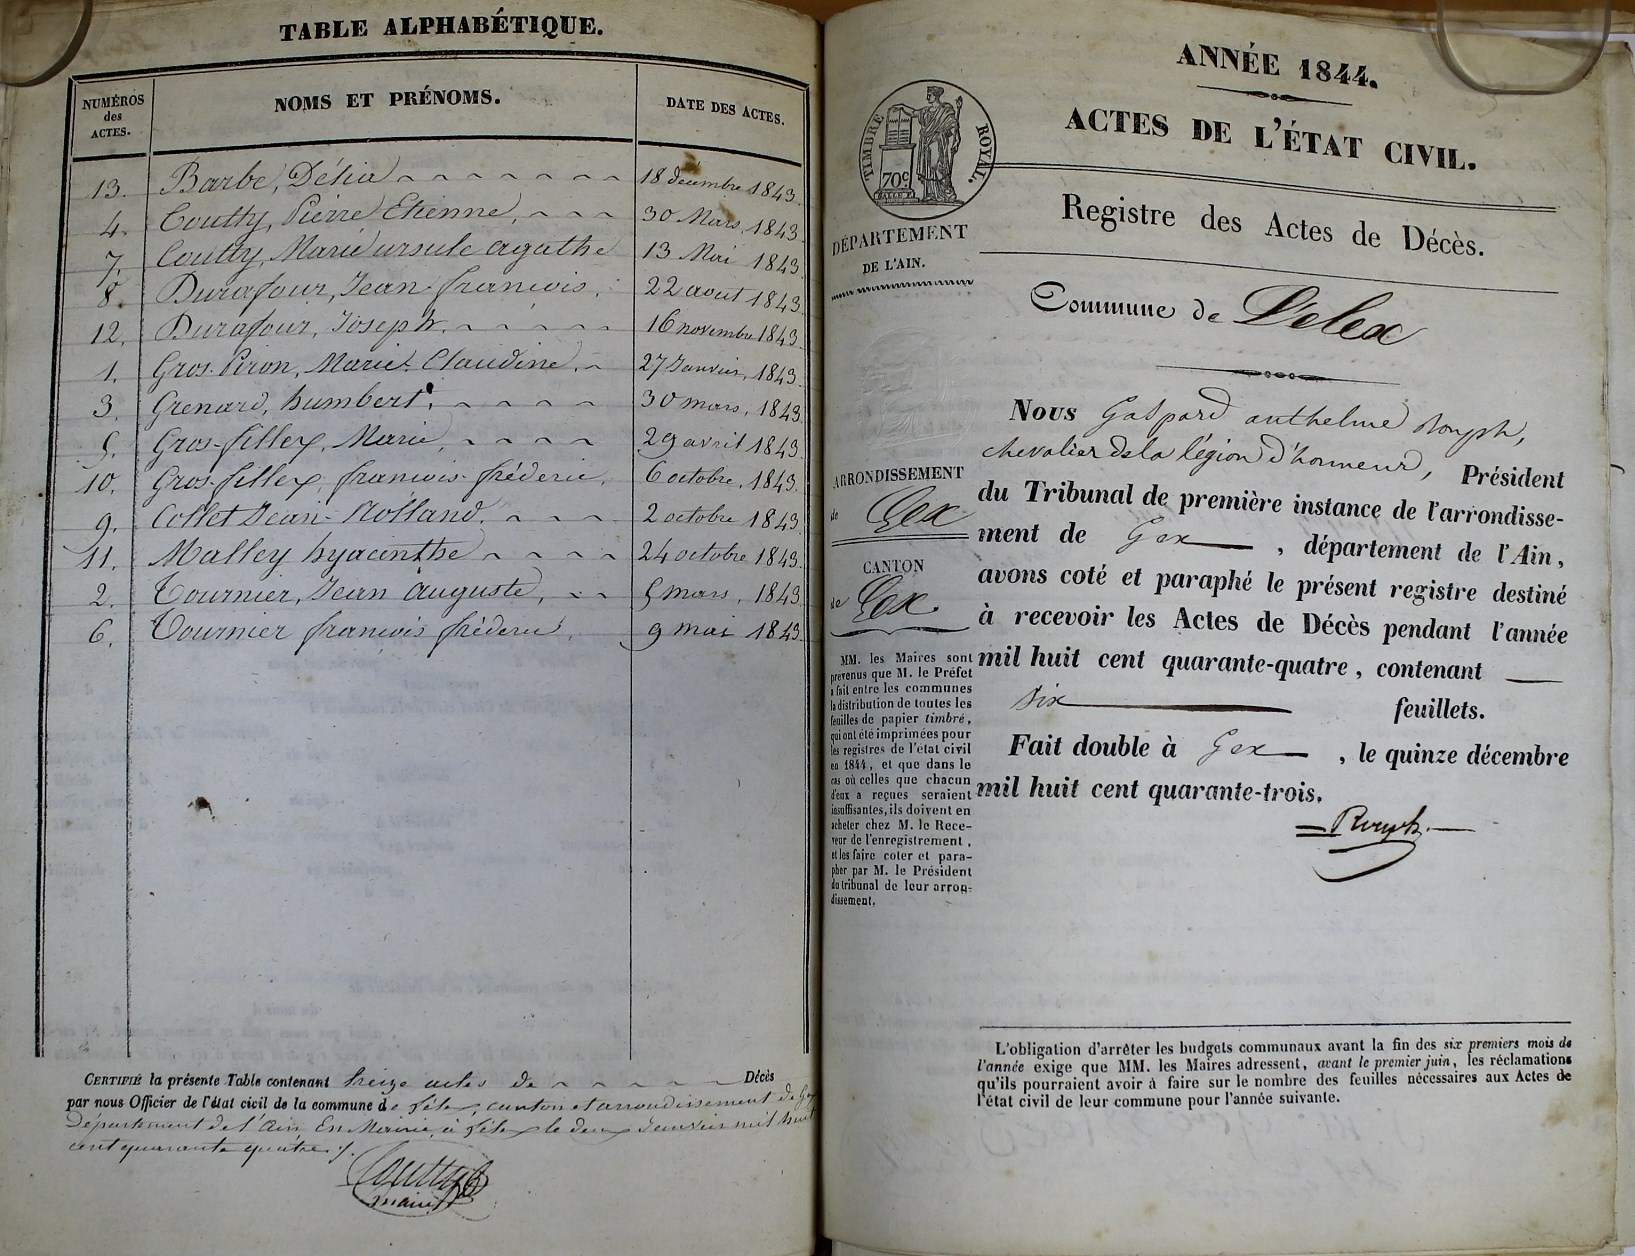 TABLE ALPHABÉTIQUE.
NUMÉROS des ACTES. NOMS ET PRÉNOMS. DATE DES ACTES.
13. Barbe, Délia 18 décembre 1843.
4. Coutty, Pierre Etienne, 30 Mars, 1843
7. Coutty, Marie ursule agathe 13 Mai 1843
8. Durafour, Jean-françois, 22 aout 1843
12. Durafour, Joseph. 16 novembre 1843
1. Gros-Piron, Marie-Claudine, 27 Janvier, 1843
3. Grenard, humbert, 30 mars, 1843
5. Gros-fillex, Marie, 29 avril 1843
10. Gros-fillex, francois-fréderic, 6 octobre, 1843.
9. Collet Jean-Rolland. 2 octobre 1843
11. Malley hyacinthe 24 octobre 1843
2. Tournier, Jean Auguste, 5 mars, 1843
6. Tournier françois fréderic, 9 mai 1843
CERTIFIÉ la présente Table contenant treize actes de Décès
par nous Officier de l'état civil de la commune de Lélex, canton et arrondissement de Gex
Département de l'Ain En Mairie à Lélex le deux Janvier mil huit
cent quarante quatre ./.
Coutty
maire
ANNÉE 1844.
ACTES DE L'ÉTAT CIVIL.
TIMBRE ROYAL.
70c
Registre des Actes de Décès.
DÉPARTEMENT
DE L'AIN.
Commune de Lelex
ARRONDISSEMENT
de Gex
CANTON
de Gex.
MM. les Maires sont
prévenus que M. le Préfet
a fait entre les communes
la distribution de toutes les
feuilles de papier timbré,
qui ont été imprimées pour
les registres de l'état civil
en 1844, et que dans le
cas où celles que chacun
d'eux a reçues seraient
insuffisantes, ils doivent en
acheter chez M. le Rece-
veur de l'enregistrement,
et les faire coter et para-
pher par M. le Président
du tribunal de leur arron-
dissement.
Nous Gaspard anthelme
chevalier de la légion d'honneur, Président
du Tribunal de première instance de l'arrondisse-
ment de Gex, département de l'Ain,
avons coté et paraphé le présent registre destiné
à recevoir les Actes de Décès pendant l'année
mil huit cent quarante-quatre, contenant
six feuillets.
Fait double à Gex, le quinze décembre
mil huit cent quarante-trois.
L'obligation d'arrêter les budgets communaux avant la fin des six premiers mois de
l'année exige que MM. les Maires adressent, avant le premier juin, les réclamations
qu'ils pourraient avoir à faire sur le nombre des feuilles nécessaires aux Actes de
l'état civil de leur commune pour l'année suivante.